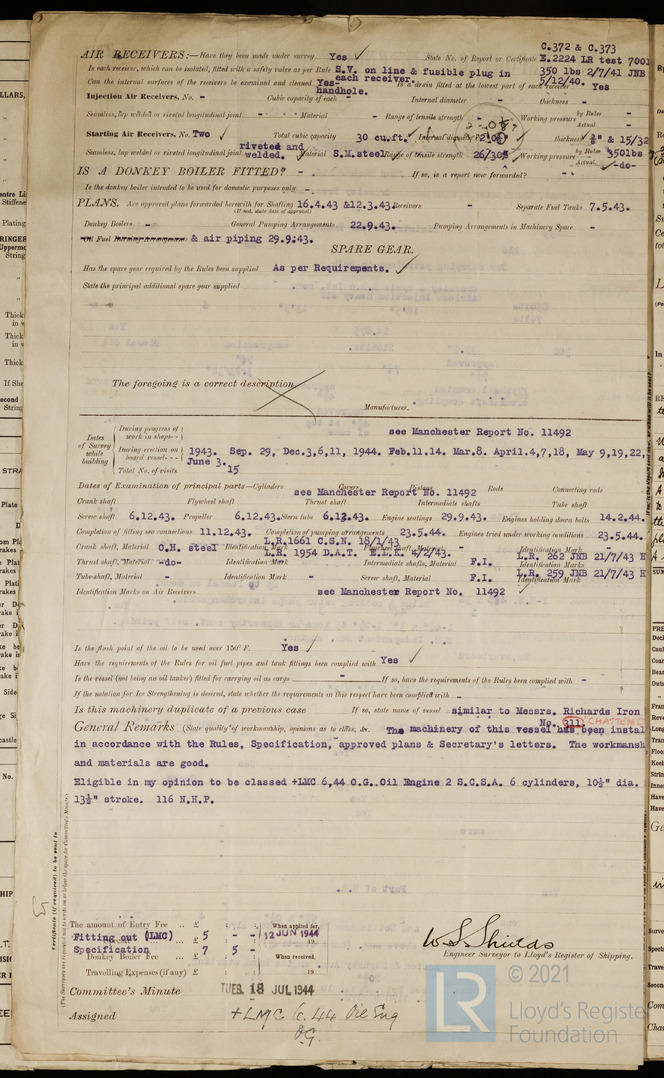 C.372 & C.373
AIR RECEIVERS:—Have they been made under survey Yes ✓ State No. of Report or Certificate E.2224 LR test 7001
Is each receiver, which can be isolated, fitted with a safety valve as per Rule S.V. on line & fusible plug in each receiver. 350 lbs 2/7/41 JNB 5/12/40.
Can the internal surfaces of the receivers be examined and cleaned Yes- handhole. Is a drain fitted at the lowest part of each receiver Yes
Injection Air Receivers, No. - Cubic capacity of each - Internal diameter - thickness -
Seamless, lap welded or riveted longitudinal joint - Material - Range of tensile strength - Working pressure by Rules - Actual -
Starting Air Receivers, No. Two ✓ Total cubic capacity 30 cu.ft. Internal diameter thickness ½" & 15/32
Seamless, lap welded or riveted longitudinal joint riveted and welded. Material S.M.steel Range of tensile strength 26/30 Working pressure by Rules 350lbs Actual -do-
IS A DONKEY BOILER FITTED? - If so, is a report now forwarded? -
Is the donkey boiler intended to be used for domestic purposes only -
PLANS. Are approved plans forwarded herewith for Shafting 16.4.43 &12.3.43. Receivers - Separate Fuel Tanks 7.5.43.
(If not, state date of approval)
Donkey Boilers - General Pumping Arrangements 22.9.43. Pumping Arrangements in Machinery Space -
Oil Fuel & air piping 29.9.43.
SPARE GEAR.
Has the spare gear required by the Rules been supplied As per Requirements. ✓
State the principal additional spare gear supplied
The foregoing is a correct description,
Manufacturer.
Dates of Survey while building
During progress of work in shops - - see Manchester Report No. 11492
During erection on board vessel - - - 1943. Sep. 29, Dec.3,6,11, 1944. Feb.11.14. Mar.8. April.4,7,18, May 9,19,22, June 3.
Total No. of visits 15
Dates of Examination of principal parts—Cylinders Covers Pistons Rods Connecting rods
see Manchester Report No. 11492
Crank shaft Flywheel shaft Thrust shaft Intermediate shafts Tube shaft
Screw shaft 6.12.43. Propeller 6.12.43. Stern tube 6.12.43. Engine seatings 29.9.43. Engines holding down bolts 14.2.44.
Completion of fitting sea connections 11.12.43. Completion of pumping arrangements 23.5.44. Engines tried under working conditions 23.5.44.
Crank shaft, Material O.H. steel Identification Mark L.R.1661 C.S.N. 18/1/43 Flywheel shaft, Material Identification Mark -
L.R. 1954 D.A.T.
Thrust shaft, Material -do- Identification Mark Intermediate shafts, Material F.I. Identification Marks L.R. 262 JNB 21/7/43 H
Tube shaft, Material - Identification Mark - Screw shaft, Material F.I. Identification Mark L.R. 259 JNB 21/7/43 H
Identification Marks on Air Receivers see Manchester Report No. 11492
Is the flash point of the oil to be used over 150° F. Yes ✓
Have the requirements of the Rules for oil fuel pipes and tank fittings been complied with Yes ✓
Is the vessel (not being an oil tanker) fitted for carrying oil as cargo - If so, have the requirements of the Rules been complied with -
If the notation for Ice Strengthening is desired, state whether the requirements in this respect have been complied with -
Is this machinery duplicate of a previous case If so, state name of vessel similar to Messrs. Richards Iron
No. 311. CHATTENE
General Remarks (State quality of workmanship, opinions as to class, &c. The machinery of this vessel has been instal
in accordance with the Rules, Specification, approved plans & Secretary's letters. The workmansh
and materials are good.
Eligible in my opinion to be classed +LMC 6,44 O.G. Oil Engine 2 S.C.S.A. 6 cylinders, 10½" dia.
13½" stroke. 116 N.H.P.
Certificate (if required) to be sent to
(The Surveyors are requested not to write on or below the space for Committee's Minute.)
The amount of Entry Fee .. £ When applied for,
Fitting out (LMC) .. £ 5 - - 12 JUN 1944
Specification 7 5 -
Donkey Boiler Fee .. £ When received,
Travelling Expenses (if any) £ 19
W. S. Shields
Engineer Surveyor to Lloyd's Register of Shipping.
Committee's Minute TUES. 18 JUL 1944
Assigned + LMC 6.44 Oil Eng
O.G.
LR
© 2021
Lloyd's Registe
Foundation